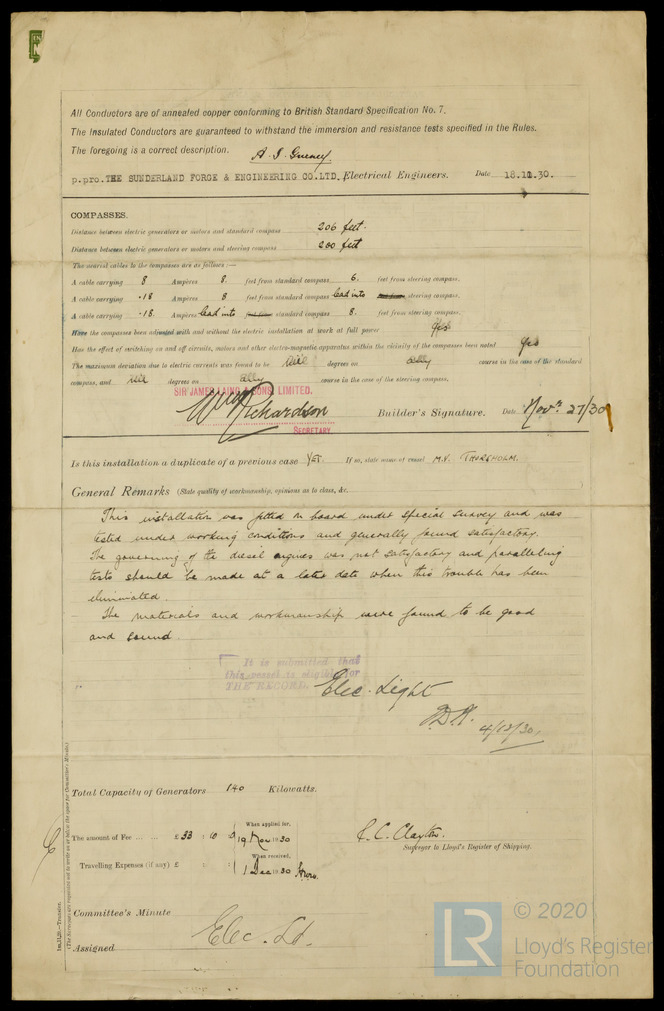 All Conductors are of annealed copper conforming to British Standard Specification No. 7.
The Insulated Conductors are guaranteed to withstand the immersion and resistance tests specified in the Rules.
The foregoing is a correct description.
p.pro. THE SUNDERLAND FORGE & ENGINEERING CO.LTD. Electrical Engineers. Date 18.11.30.
COMPASSES.
Distance between electric generators or motors and standard compass 206 feet.
Distance between electric generators or motors and steering compass 200 feet
The nearest cables to the compasses are as follows:—
A cable carrying 8 Ampères 8. feet from standard compass 6. feet from steering compass.
A cable carrying .18 Ampères 8 feet from standard compass lead into steering compass.
A cable carrying .18. Ampères lead into standard compass 8. feet from steering compass.
Have the compasses been adjusted with and without the electric installation at work at full power Yes
Has the effect of switching on and off circuits, motors and other electro-magnetic apparatus within the vicinity of the compasses been noted Yes
The maximum deviation due to electric currents was found to be Nil degrees on any course in the case of the standard
compass, and nil degrees on any course in the case of the steering compass.
SIR JAMES LAING & SONS, LIMITED.
Richardson Builder's Signature. Date Novr 27/30
SECRETARY.
Is this installation a duplicate of a previous case Yes If so, state name of vessel M.V. THORSHOLM.
General Remarks (State quality of workmanship, opinions as to class, &c.
This installation was fitted on board under special survey and was
tested under working conditions and generally found satisfactory.
The governing of the diesel engines was not satisfactory and paralleling
tests should be made at a later date when this trouble has been
eliminated.
The materials and workmanship were found to be good
and sound
It is submitted that
this vessel is eligible for
THE RECORD. Elec. Light
4/12/30.
Total Capacity of Generators 140 Kilowatts.
When applied for,
The amount of Fee ... ... £ 33 : 10 : 19 Nov 1930
C. C. Clayton
Surveyor to Lloyd's Register of Shipping.
When received,
Travelling Expenses (if any) £ : : 1 Dec 1930
Committee's Minute
Assigned Elec. Lt.
1m,11,28.—Transfer.
(The Surveyors are requested not to write on or below the space for Committee's Minute.)
LR © 2020
Lloyd's Register
Foundation